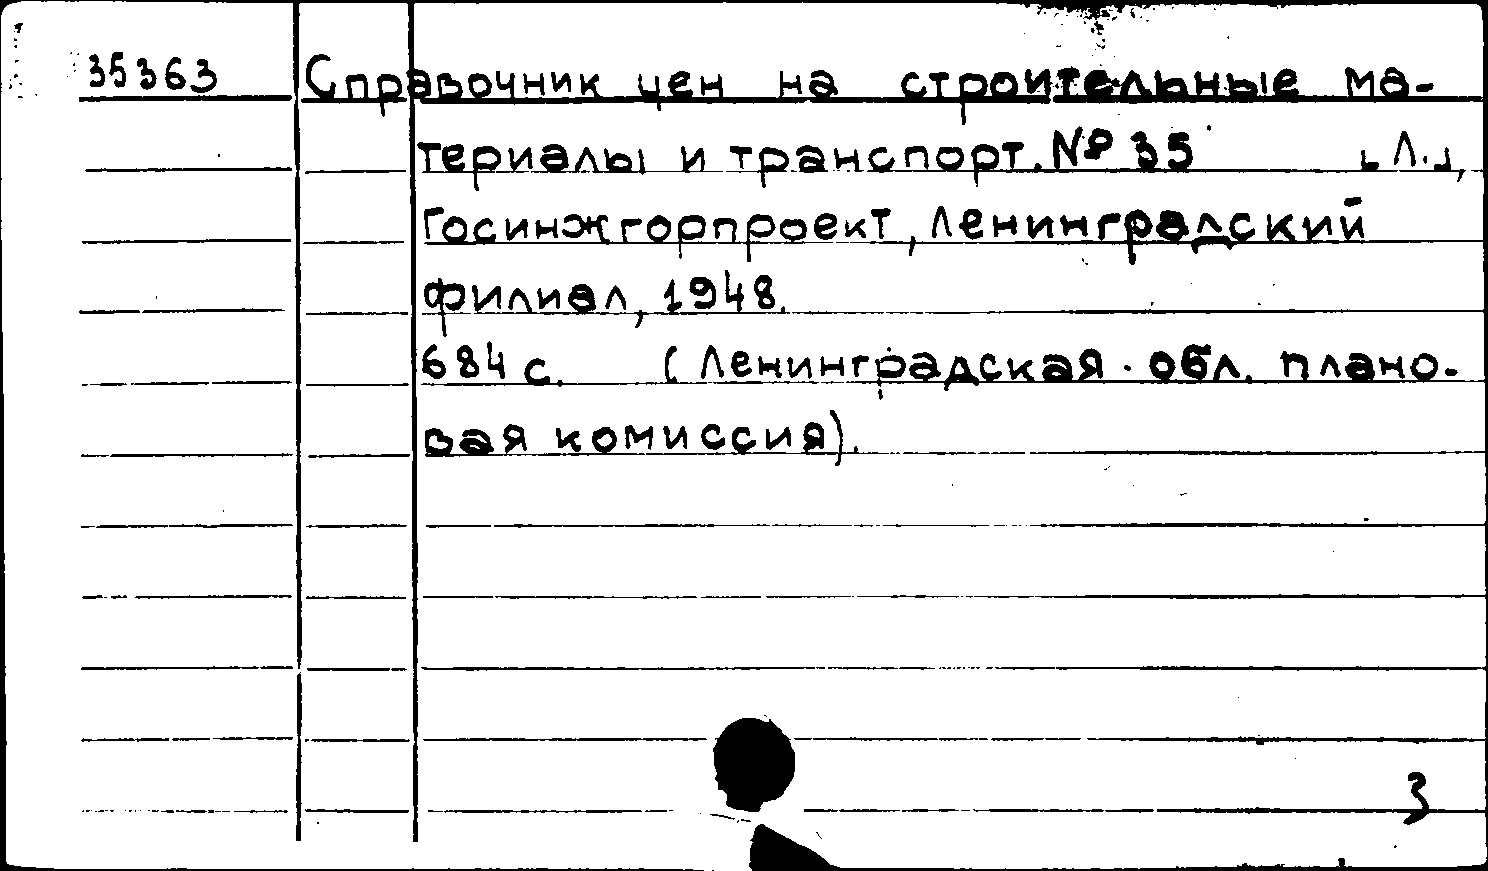 35363 Справочник цен на строительные ма-
териалы и транспорт. № 35 [Л.],
Госинжгорпроект, Ленинградский
филиал, 1948.
684 с. (Ленинградская обл. плано-
вая комиссия).
3